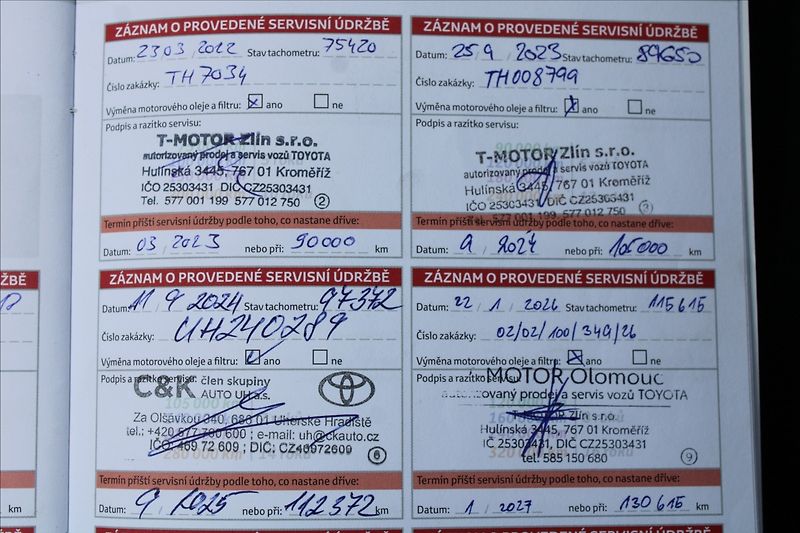 ZÁZNAM O PROVEDENÉ SERVISNÍ ÚDRŽBĚ
Datum: 23 03 2022 Stav tachometru: 75420
Číslo zakázky: TH7034
Výměna motorového oleje a filtru: ano ne
Podpis a razítko servisu:
T-MOTOR Zlín s.r.o.
autorizovaný prodej a servis vozů TOYOTA
Hulínská 3445, 767 01 Kroměříž
IČO 25303431 DIČ CZ25303431
Tel. 577 001 199 577 012 750 2
Termín příští servisní údržby podle toho, co nastane dříve:
Datum: 03 2023 nebo při: 90000 km
ZÁZNAM O PROVEDENÉ SERVISNÍ ÚDRŽBĚ
Datum: 25 9 2023 Stav tachometru: 89650
Číslo zakázky: TH008799
Výměna motorového oleje a filtru: ano ne
Podpis a razítko servisu:
T-MOTOR Zlín s.r.o.
autorizovaný prodej a servis vozů TOYOTA
Hulínská 3445, 767 01 Kroměříž
IČO 25303431 DIČ CZ25303431
Tel. 577 001 199 577 012 750
Termín příští servisní údržby podle toho, co nastane dříve:
Datum: 9 2024 nebo při: 105000 km
ŽBĚ
km
km
ZÁZNAM O PROVEDENÉ SERVISNÍ ÚDRŽBĚ
Datum: 11 9 2024 Stav tachometru: 97372
Číslo zakázky: UH240789
Výměna motorového oleje a filtru: ano ne
Podpis a razítko servisu:
C&K člen skupiny
AUTO UH a.s.
Za Olšávkou 340, 686 01 Uherské Hradiště
tel.: +420 517 700 600 ; e-mail: uh@ckauto.cz
IČO: 469 72 609 ; DIČ: CZ46972609 6
Termín příští servisní údržby podle toho, co nastane dříve:
Datum: 9 2025 nebo při: 112372 km
ZÁZNAM O PROVEDENÉ SERVISNÍ ÚDRŽBĚ
Datum: 22 1 2026 Stav tachometru: 115615
Číslo zakázky: 02/02/100/349/26
Výměna motorového oleje a filtru: ano ne
Podpis a razítko servisu:
MOTOR Olomouc
autorizovaný prodej a servis vozů TOYOTA
T-MOTOR Zlín s.r.o.
Hulínská 3445, 767 01 Kroměříž
IČ 25303431, DIČ CZ25303431
tel: 585 150 680 9
Termín příští servisní údržby podle toho, co nastane dříve:
Datum: 1 2027 nebo při: 130615 km
ZÁZNAM O PROVEDENÉ SERVISNÍ ÚDRŽBĚ